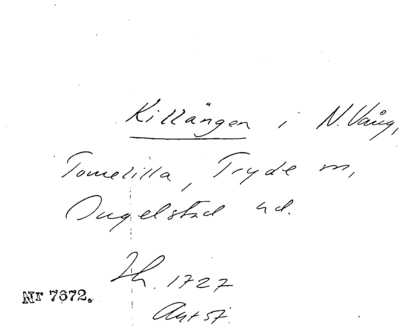 Killängen i N. Vång,
Tomelilla, Tryde sn,
Ingelstad hd.
Jh. 1727
Nr 7672.